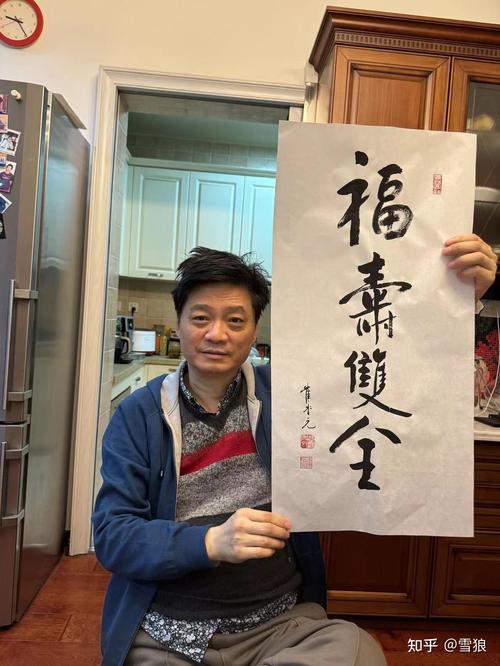 福壽雙全
崔永元
知乎 @雪狼